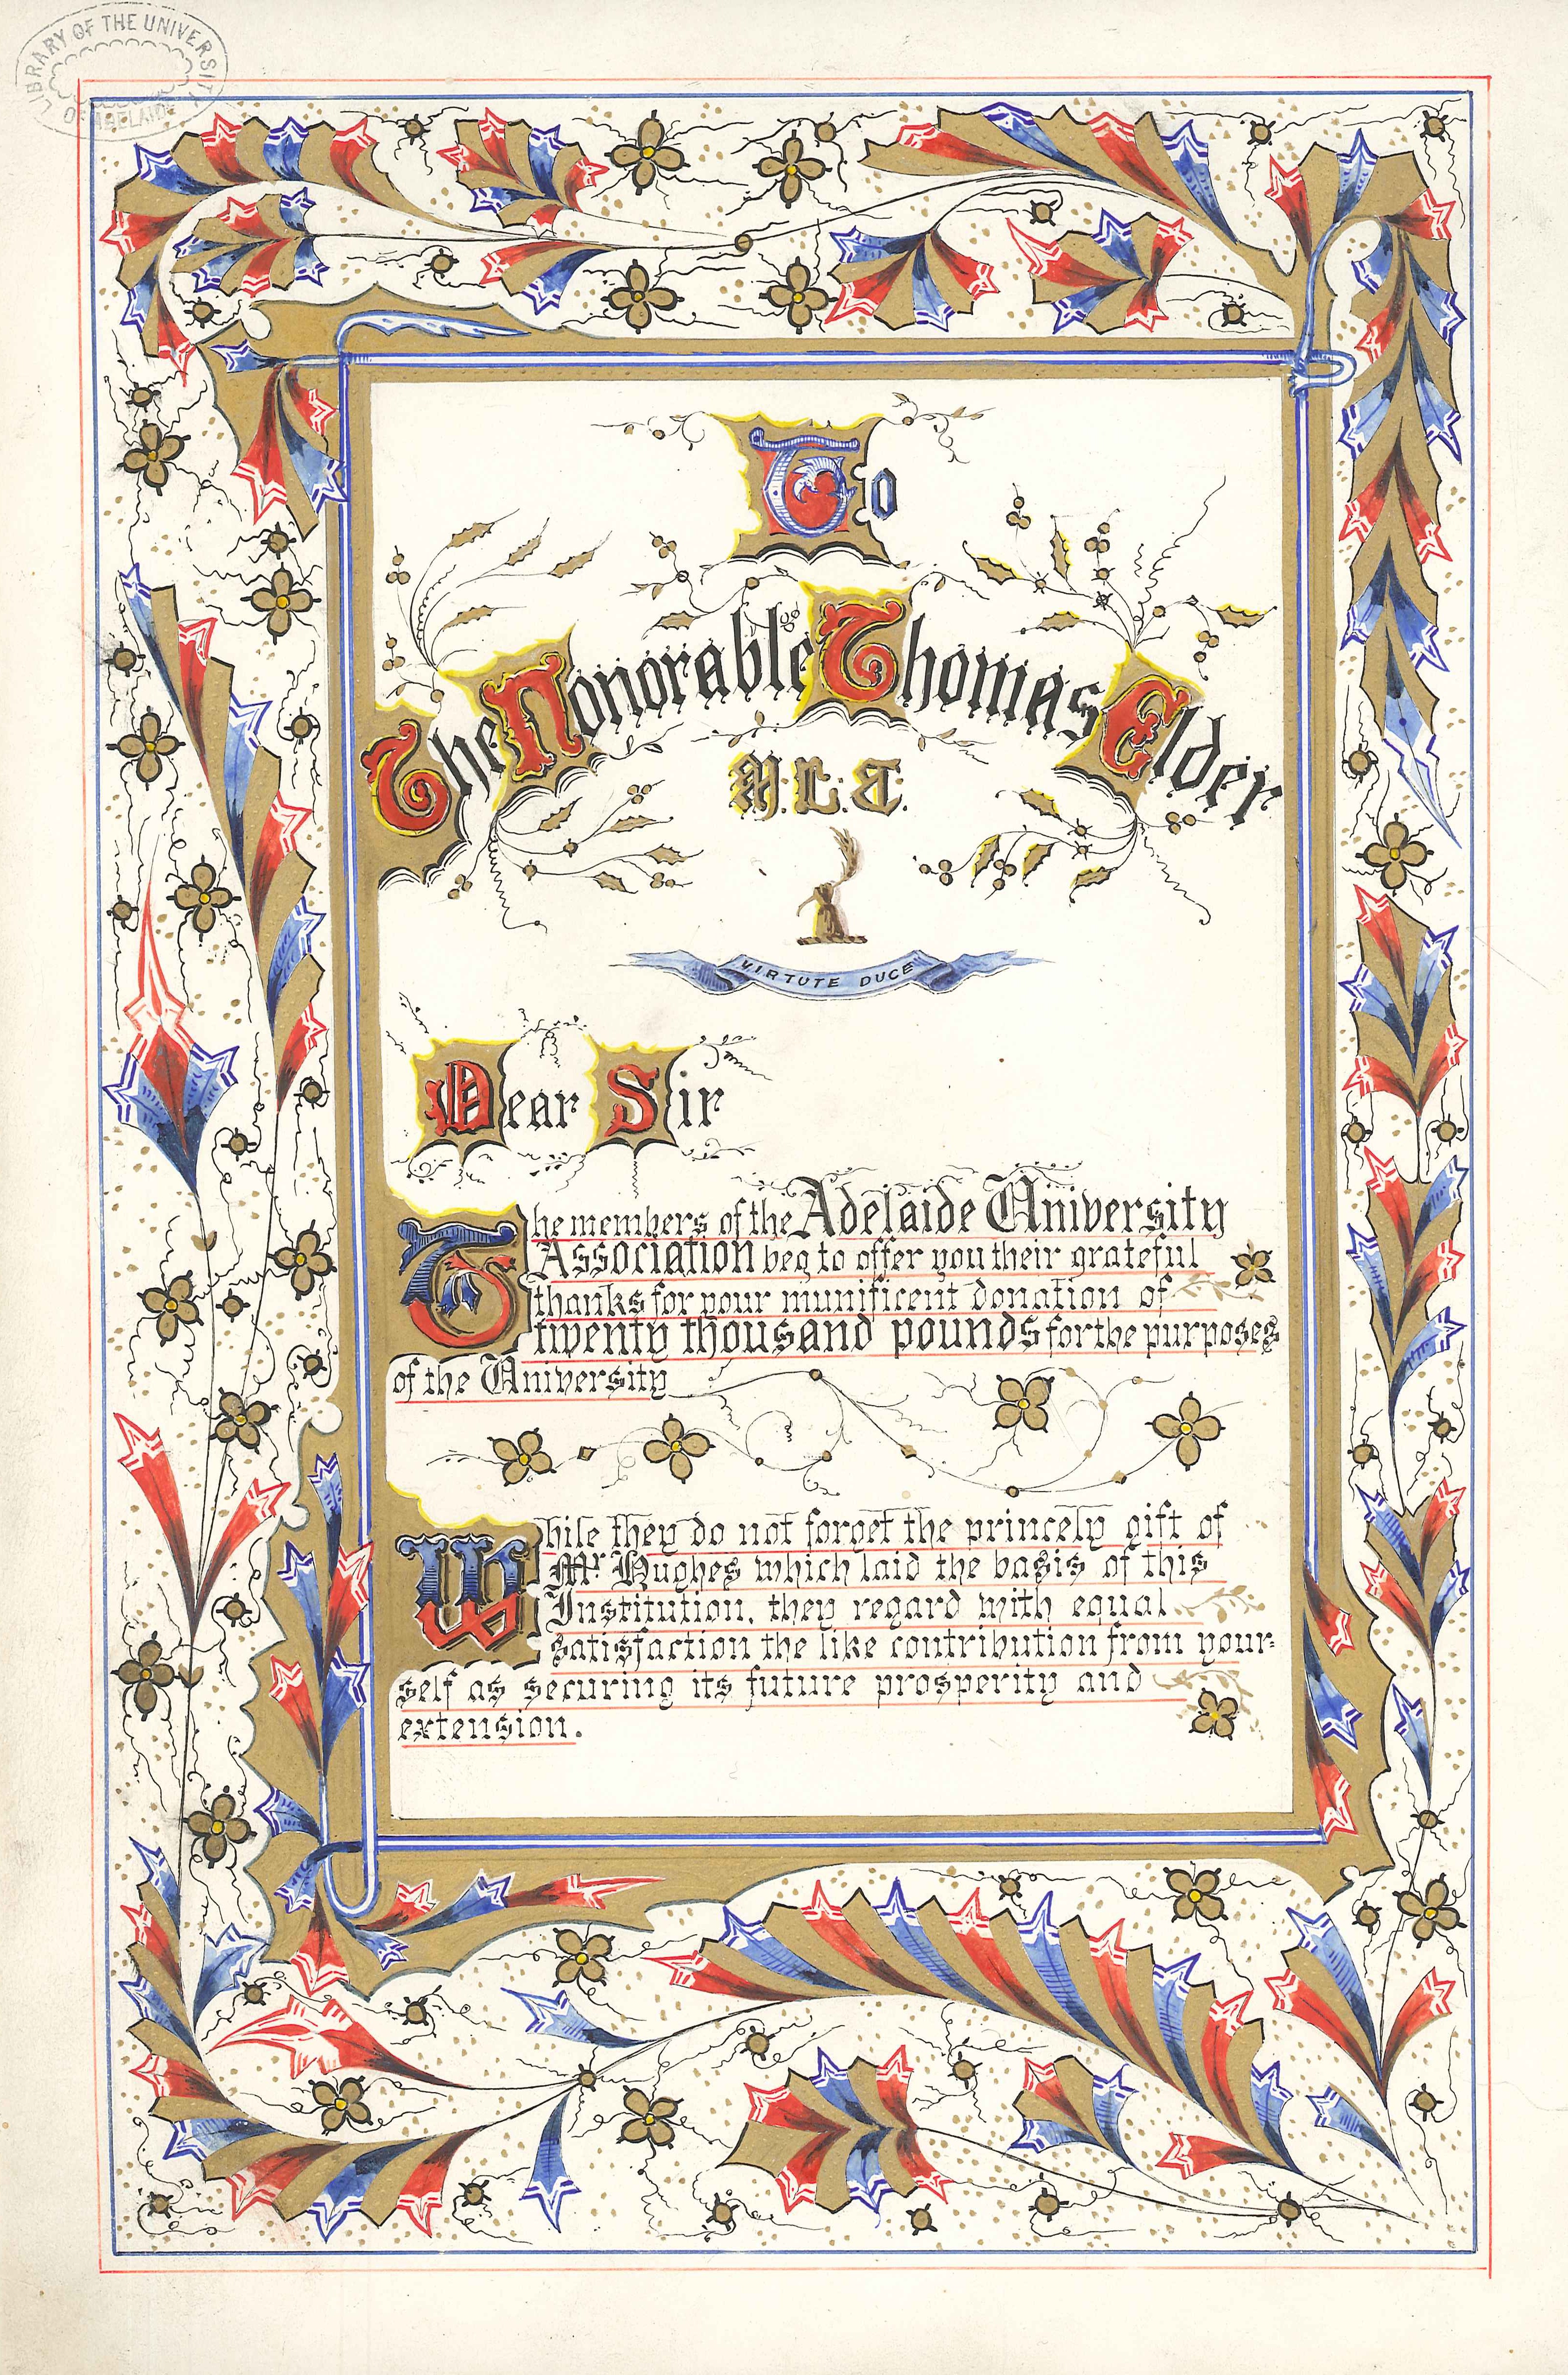 LIBRARY OF THE UNIVERSITY
OF ADELAIDE
To
The Honorable Thomas Elder
M.L.C.
VIRTUTE DUCE
Dear Sir
The members of the Adelaide University
Association beg to offer you their grateful
thanks for your munificent donation of
twenty thousand pounds for the purposes
of the University
While they do not forget the princely gift of
Mr Hughes which laid the basis of this
Institution, they regard with equal
satisfaction the like contribution from your=
self as securing its future prosperity and
extension.